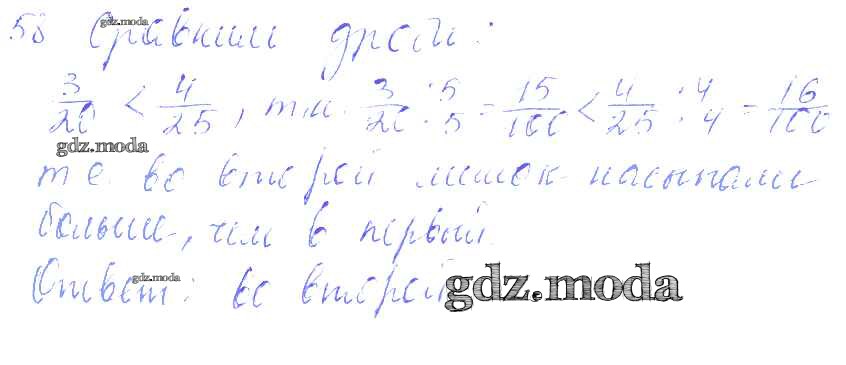 58 Сравним дроби:
3/20 < 4/25, т.к. 3/20 · 5/5 = 15/100 < 4/25 · 4/4 = 16/100
т.е. во второй мешок насыпали
больше, чем в первый.
Ответ: во второй
gdz.moda
gdz.moda
gdz.moda
gdz.moda